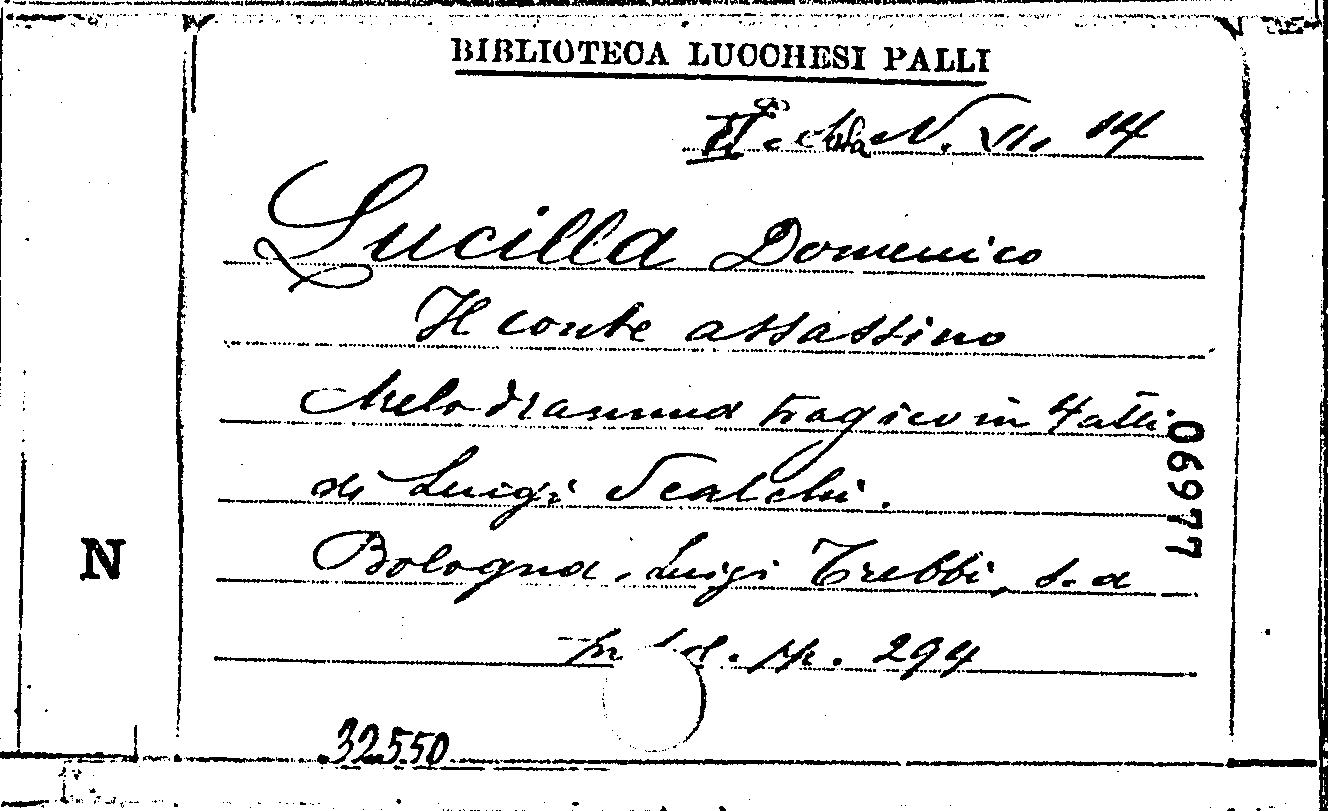 BIBLIOTECA LUCCHESI PALLI
N. VII. 14
Lucilla Domenico
Il conte assassino
Melodramma tragico in 4 atti
di Luigi Scalchi.
Bologna, Luigi Trebbi, s. a
in pp. 294
06977
N
32550